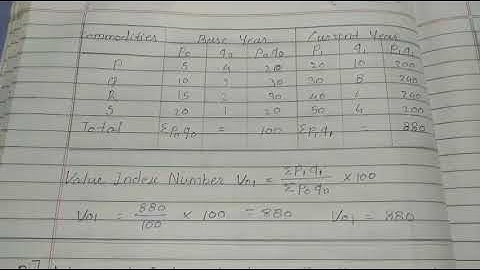 Commodities Base Year Current Year
P0 q0 P0q0 P1 q1 P1q1
P 5 4 20 20 10 200
Q 10 3 30 30 8 240
R 15 2 30 40 6 240
S 20 1 20 50 4 200
Total ΣP0q0 = 100 ΣP1q1 = 880
Value Index Number V01 = ΣP1q1/ΣP0q0 × 100
V01 = 880/100 × 100 = 880 V01 = 880